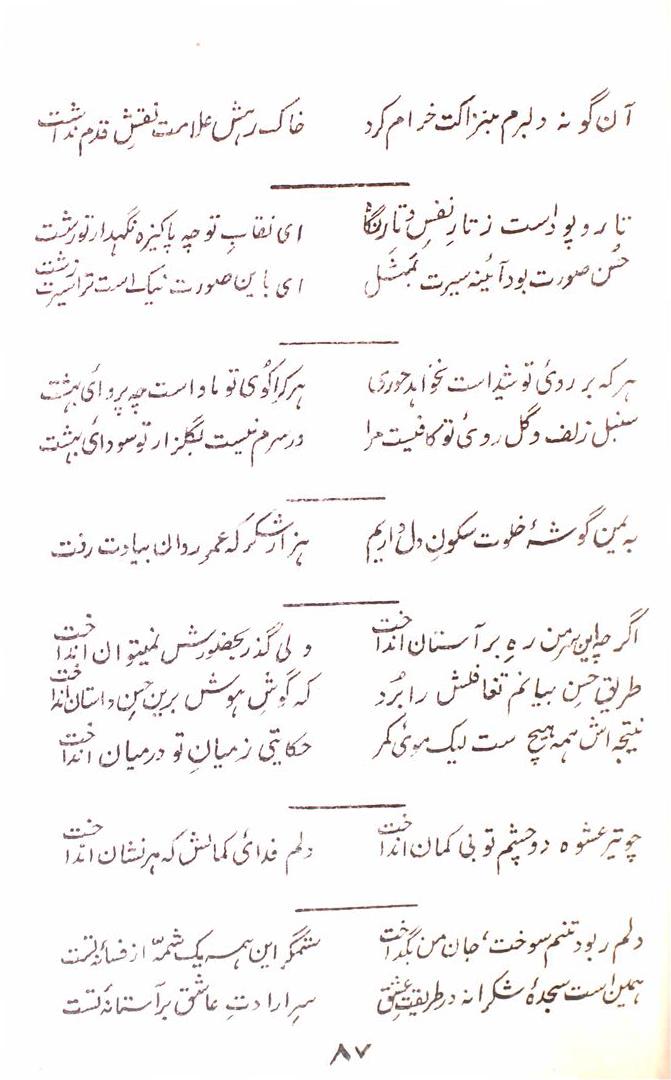 آن گونه دلبرم بنزاکت خرام کرد خاک رهش علامت نقش قدم نداشت
تار و پود است ز تارِ نفس و تارِ نگاه ای نقابِ تو چه پاکیزه نگهدار تو رشت
حُسن صورت بود آئینه سیرت بمثل ای با این صورت نیک است ترا سیرت زشت
هر که بر روئ تو شیداست نخواهد حوری هر کرا کوُی تو ماواست چه پروائ بهشت
سنبل زلف و گل روئ تو کافیست مرا در سرم نیست بگلزار تو سودائ بهشت
به یمن گوشۂ خلوت سکونِ دل داریم هزار شکر که عمرِ روان بیادت رفت
اگر چه این سرِ من رہِ بر آستان انداخت ولی گذر بحضورش نمیتوان انداخت
طریقِ حسنِ بیانم تغافلش را بُرد که گوشِ هوش برین حسنِ داستان انداخت
نتیجه اش همه هیچ ست لیک موئ کمر حکایتی ز میانِ تو درمیان انداخت
چو تیر عشوه دو چشم تو بی کمان انداخت دلم فدائ کمانش که هر نشان انداخت
دلم ربود تنم سوخت، جان من بگداخت ستمگر این همه یک شمّه از فسانۂ تست
همین است سجدۂ شکرانه در طریقتِ عشق سرِ ارادتِ عاشق بر آستانۂ تست
۸۷